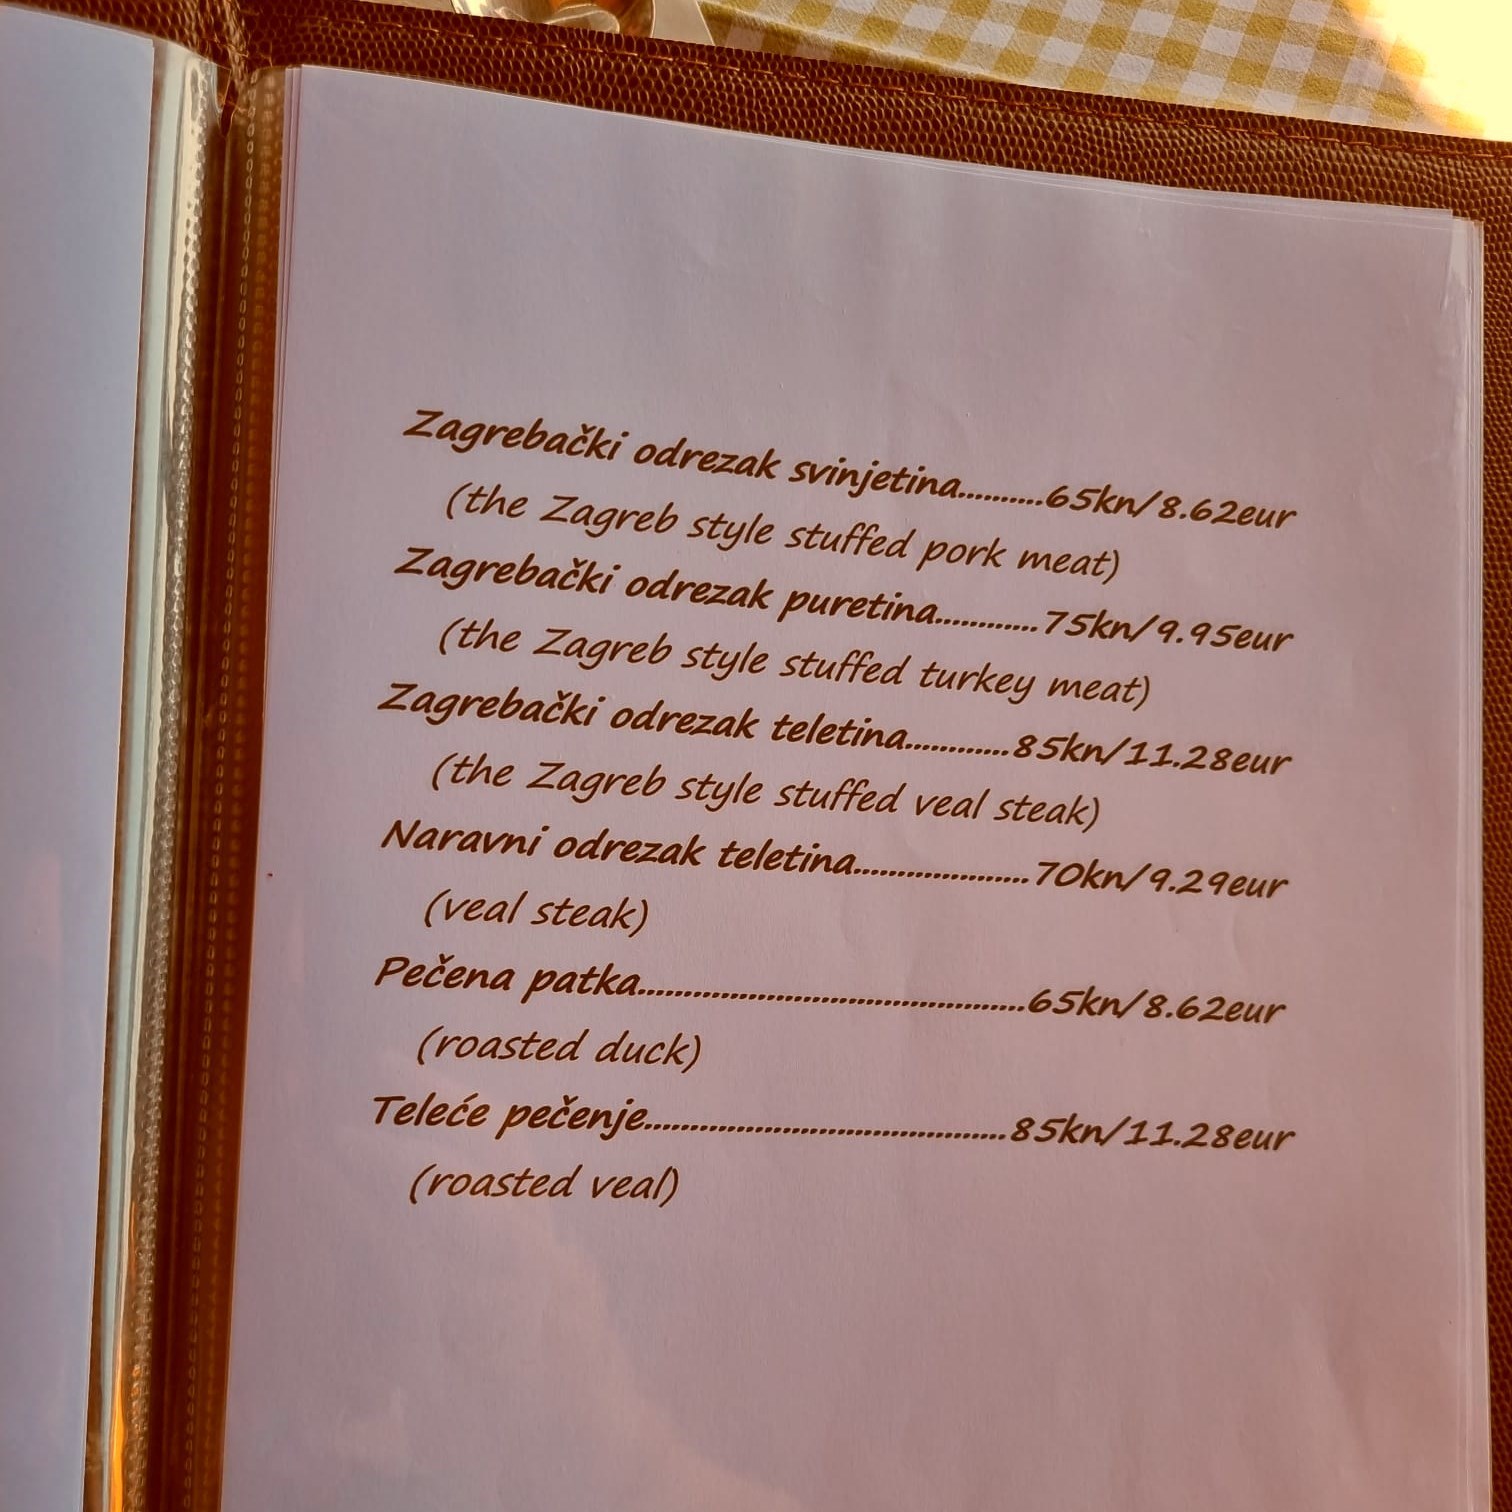 Zagrebački odrezak svinjetina..........65kn/8.62eur
(the Zagreb style stuffed pork meat)
Zagrebački odrezak puretina............75kn/9.95eur
(the Zagreb style stuffed turkey meat)
Zagrebački odrezak teletina............85kn/11.28eur
(the Zagreb style stuffed veal steak)
Naravni odrezak teletina....................70kn/9.29eur
(veal steak)
Pečena patka.............................................65kn/8.62eur
(roasted duck)
Teleće pečenje..........................................85kn/11.28eur
(roasted veal)